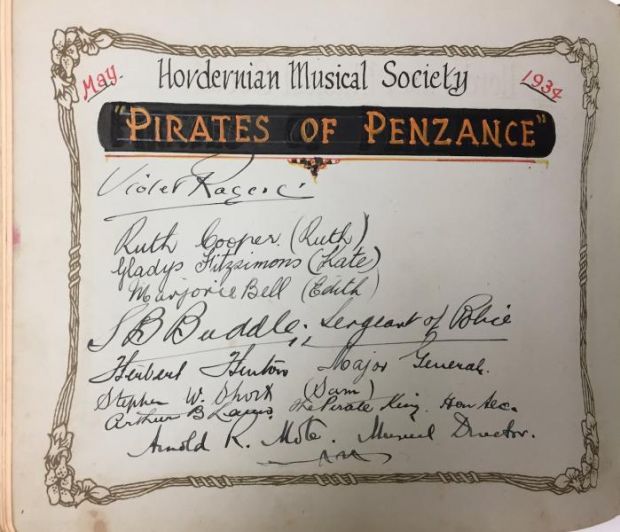 May.
Hordernian Musical Society
1934
"PIRATES OF PENZANCE"
Violet
Ruth Cooper. (Ruth)
Gladys Fitzsimons (Kate)
Marjorie Bell (Edith)
S B Buddle, Sergeant of Police
Herbert Hinton Major General.
Stephen W. Short (Sam)
Arthur B The Pirate King. Hon Sec.
Arnold R. Mote. Musical Director.